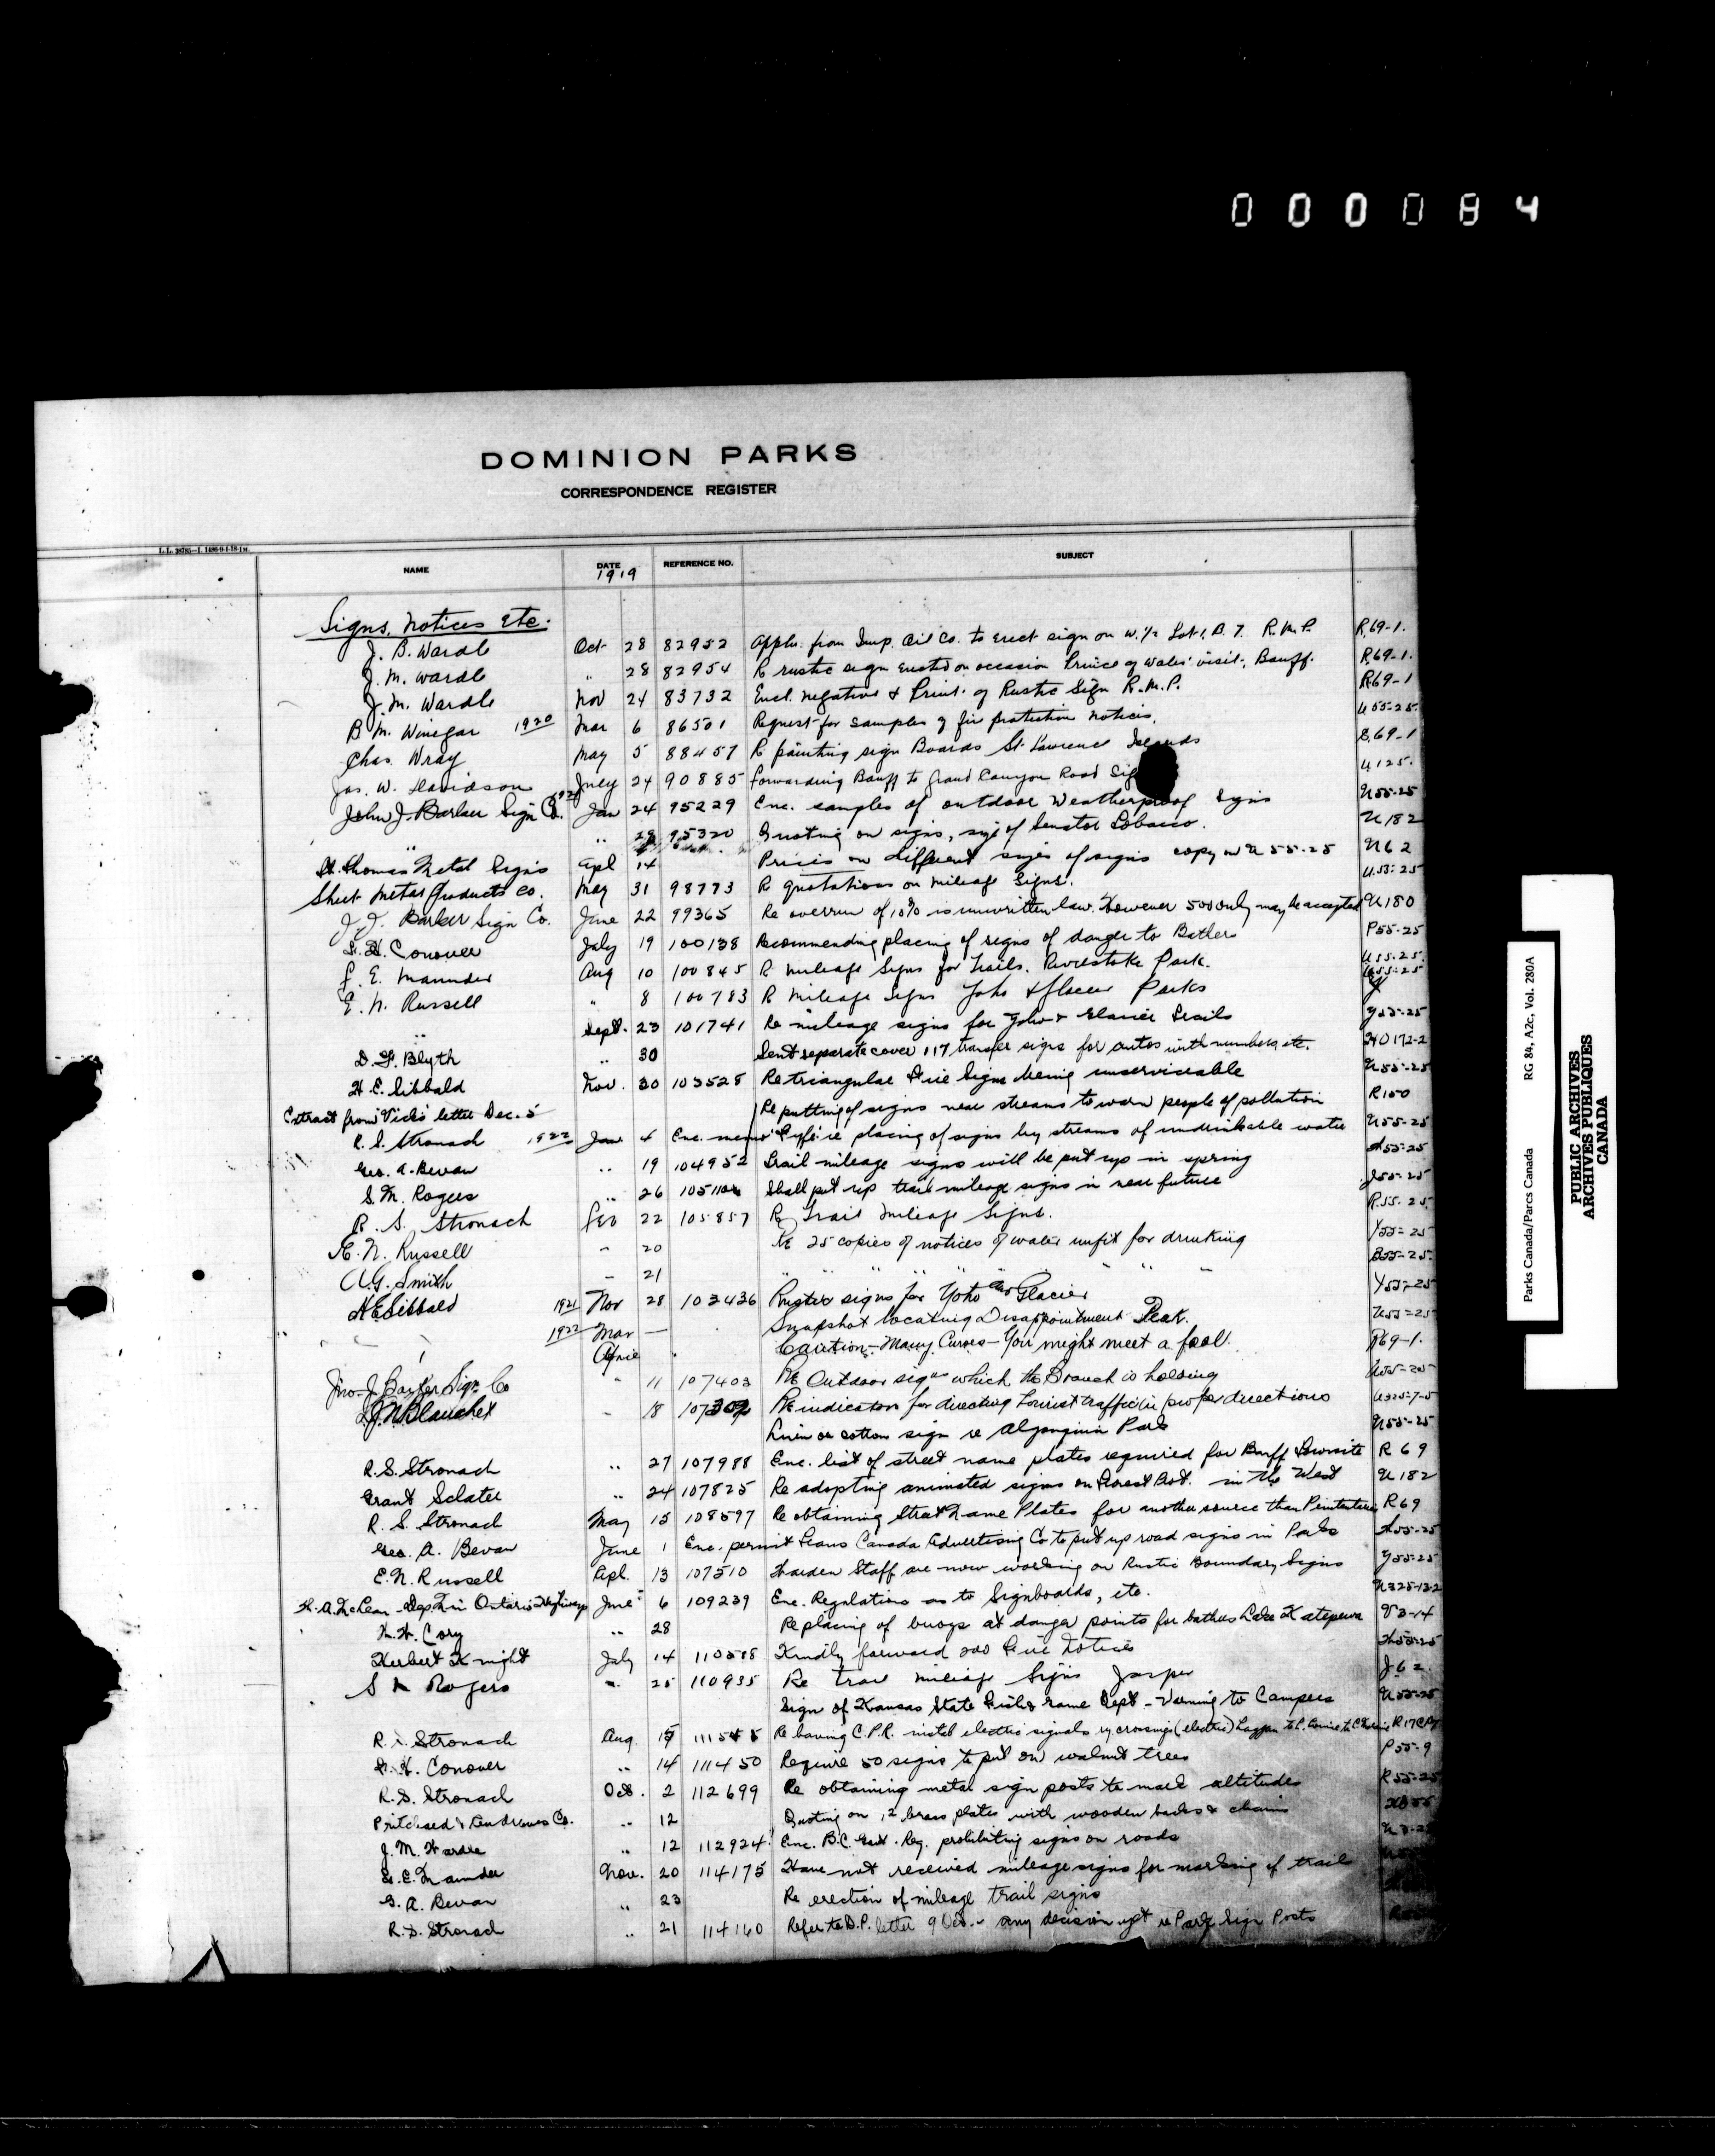 000084
DOMINION PARKS
CORRESPONDENCE REGISTER
L.L. 38785—I. 1486-9-1-18-1M.
NAME DATE REFERENCE NO. SUBJECT
1919
Signs, Notices Etc.
J. B. Wardle Oct 28 82952 Appln. from Imp. Oil Co. to erect sign on W. 1/2 Lot 1, B. 7. R.M.P. R.69-1.
J. M. Wardle " 28 82954 R rustic sign erected on occasion Prince of Wales' visit, Banff. R.69-1.
J. M. Wardle Nov 24 83732 Encl. negative & Print of Rustic Sign R.M.P. R69-1
B. M. Winegar 1920 Mar 6 86501 Request for samples of fire protection notices. U55-25
Chas. Wray May 5 88457 R painting sign Boards St. Lawrence Islands S.69-1
Jas. W. Davidson July 24 90885 forwarding Banff to Grand Canyon Road U125.
John J. Barker Sign Co. 1921 Jan 24 95229 Enc. samples of outdoor Weatherproof Signs U55-25
" " 28 95320 Quoting on signs, size of Senator Tobacco. U182
St. Thomas Metal Signs Apl 14 Prices on different sizes of signs copy on U55-25 U62
Sheet Metal Products Co. May 31 98773 R quotations on mileage Signs. U55-25
J. J. Barker Sign Co. June 22 99365 Re overrun of 10% is unwritten law. However 500 only may be accepted U180
F. H. Conover July 19 100138 Recommending placing of signs of danger to Bathers P55-25
F. E. Maunder Aug 10 100845 R mileage Signs for Trails. Revelstoke Park. U55-25
E. N. Russell " 8 100783 R Mileage Signs Yoho & Glacier Parks Y
" Sept. 23 101741 Re mileage signs for Yoho & Glacier Trails Y55-25
D. F. Blyth " 30 Sent separate cover 117 transfer signs for autos with numbers, etc. HO172-2
H. E. Sibbald Nov. 30 103528 Re triangular Fire Signs being unserviceable U55-25
Extract from Vick's letter Dec. 5 Re putting of signs near streams to warn people of pollution R150
R. S. Stronach 1922 Jan 4 Enc. memo re placing of signs by streams of undrinkable water U55-25
Geo. A. Bevan " 19 104952 Trail mileage signs will be put up in spring 55-25
S. M. Rogers " 26 Shall put up trail mileage signs in near future J55-25
R. S. Stronach Feb 22 105857 R Trail Mileage Signs. R55-25
E. N. Russell " 20 Re 25 copies of notices of water unfit for drinking Y55-25
A. G. Smith " 21 " " " " " " " B55-25
H E Sibbald 1921 Nov 28 103436 Rustic signs for Yoho and Glacier Y55-25
1922 Mar — Snapshot locating Disappointment Peak. U55-25
April Caution - Many Curves - You might meet a fool. R69-1.
Jno. J. Barker Sign Co " 11 107403 Re Outdoor signs which the Branch is holding U55-25
J. N. Blanchet " 18 Re indicators for directing tourist traffic in proper directions U325-7-5
Linen or cotton sign re Algonquin Park U55-25
R. S. Stronach " 27 107988 Enc. list of street name plates required for Banff Townsite R 69
Grant Sclater " 24 107825 Re adopting animated signs on Forest Prot. in the West U182
R. S. Stronach May 15 108597 Re obtaining Street Name Plates for another source than Penitentiary R69
Geo. A. Bevan June 1 Enc. permit Trans Canada Advertising Co to put up road signs in Parks 55-25
E. N. Russell Apl. 13 107510 Warden Staff are now working on Rustic Boundary Signs Y55-25
Dep. Min Ontario Highways June 6 109239 Enc. Regulations as to Signboards, etc. U325-13-2
W. W. Cory " 28 Re placing of buoys at danger points for bathers Lake Katepwa V3-14
Herbert Knight July 14 110518 Kindly forward 200 Fire Notices 55-25
S M Rogers " 25 110935 Re trail mileage Signs Jasper J62
Sign of Kansas State Fish & Game Dept - Warning to Campers U55-25
R. S. Stronach Aug. 15 Re having C.P.R. install electric signals
F. H. Conover " 14 111450 Require 50 signs to put on walnut trees P55-9
R. S. Stronach Oct. 2 112699 Re obtaining metal sign posts to mark altitudes R55-25
Pritchard & Andrews Co. " 12 Quoting on 12 brass plates with wooden backs & chains
J. M. Wardle " 12 112924 Enc. B.C. Govt. Reg. prohibiting signs on roads
F. E. Maunder Nov. 20 114175 Have not received mileage signs for marking of trail
G. A. Bevan " 23 Re erection of mileage trail signs
R. S. Stronach " 21 114160 Refer to D.P. letter 9 Oct. - any decision yet re Park Sign Posts
Parks Canada/Parcs Canada RG 84, A2c, Vol. 280A
PUBLIC ARCHIVES
ARCHIVES PUBLIQUES
CANADA